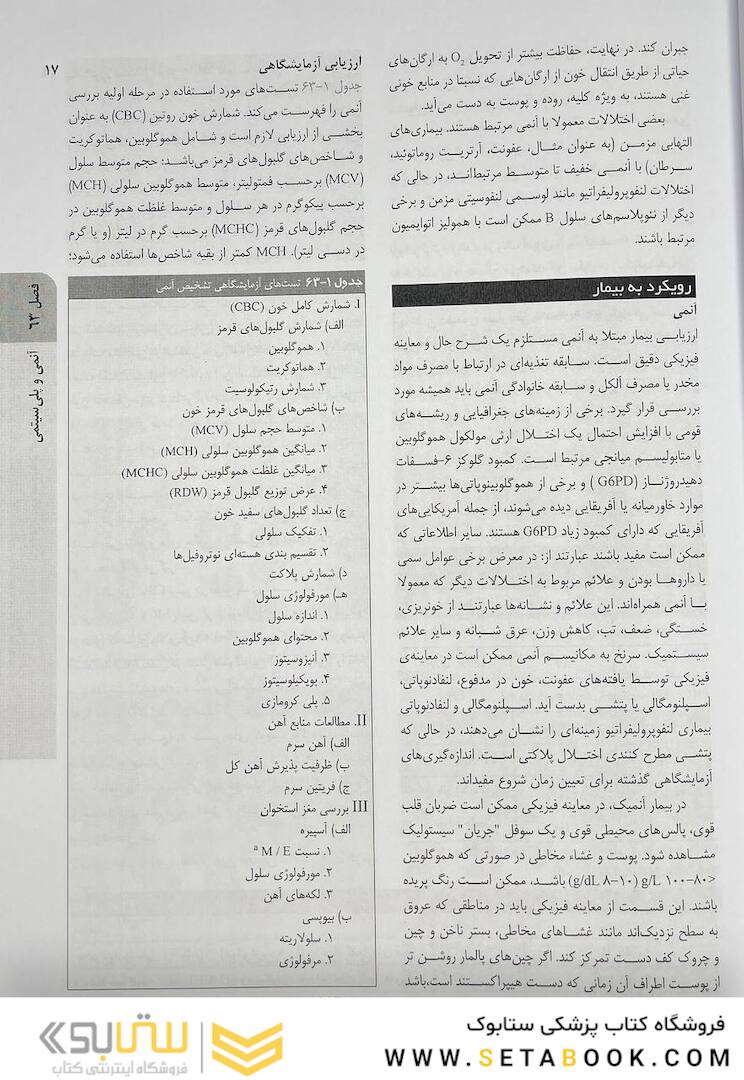 ۱۷
فصل ۶۳
آنمی و پلی‌سیتمی
جبران کند. در نهایت، حفاظت بیشتر از تحویل O2 به ارگان‌های
حیاتی از طریق انتقال خون از ارگان‌هایی که نسبتا در منابع خونی
غنی هستند، به ویژه کلیه، روده و پوست به دست می‌آید.
بعضی اختلالات معمولا با آنمی مرتبط هستند. بیماری‌های
التهابی مزمن (به عنوان مثال، عفونت، آرتریت روماتوئید،
سرطان) با آنمی خفیف تا متوسط مرتبط‌اند، در حالی که
اختلالات لنفوپرولیفراتیو مانند لوسمی لنفوسیتی مزمن و برخی
دیگر از نئوپلاسم‌های سلول B ممکن است با همولیز اتوایمیون
مرتبط باشند.
رویکرد به بیمار
آنمی
ارزیابی بیمار مبتلا به آنمی مستلزم یک شرح حال و معاینه
فیزیکی دقیق است. سابقه تغذیه‌ای در ارتباط با مصرف مواد
مخدر یا مصرف الکل و سابقه خانوادگی آنمی باید همیشه مورد
بررسی قرار گیرد. برخی از زمینه‌های جغرافیایی و ریشه‌های
قومی با افزایش احتمال یک اختلال ارثی مولکول هموگلوبین
یا متابولیسم میانجی مرتبط است. کمبود گلوکز ۶-فسفات
دهیدروژناز (G6PD ) و برخی از هموگلوبینوپاتی‌ها بیشتر در
موارد خاورمیانه یا آفریقایی دیده می‌شوند، از جمله آمریکایی‌های
آفریقایی که دارای کمبود زیاد G6PD هستند. سایر اطلاعاتی که
ممکن است مفید باشند عبارتند از: در معرض برخی عوامل سمی
یا داروها بودن و علائم مربوط به اختلالات دیگر که معمولا
با آنمی همراه‌اند. این علائم و نشانه‌ها عبارتند از خونریزی،
خستگی، ضعف، تب، کاهش وزن، عرق شبانه و سایر علائم
سیستمیک. سرنخ به مکانیسم آنمی ممکن است در معاینه‌ی
فیزیکی توسط یافته‌های عفونت، خون در مدفوع، لنفادنوپاتی،
اسپلنومگالی یا پتشی بدست آید. اسپلنومگالی و لنفادنوپاتی
بیماری لنفوپرولیفراتیو زمینه‌ای را نشان می‌دهند، در حالی که
پتشی مطرح کنندی اختلال پلاکتی است. اندازه‌گیری‌های
آزمایشگاهی گذشته برای تعیین زمان شروع مفیداند.
در بیمار آنمیک، در معاینه فیزیکی ممکن است ضربان قلب
قوی، پالس‌های محیطی قوی و یک سوفل "جریان" سیستولیک
مشاهده شود. پوست و غشاء مخاطی در صورتی که هموگلوبین
<۸۰-۱۰۰ g/L (۸-۱۰ g/dL) باشد، ممکن است رنگ پریده
باشند. این قسمت از معاینه فیزیکی باید در مناطقی که عروق
به سطح نزدیک‌اند مانند غشاهای مخاطی، بستر ناخن و چین
و چروک کف دست تمرکز کند. اگر چین‌های پالمار روشن تر
از پوست اطراف آن زمانی که دست هیپراکستند است،باشد
ارزیابی آزمایشگاهی
جدول ۱-۶۳ تست‌های مورد استفاده در مرحله اولیه بررسی
آنمی را فهرست می‌کند. شمارش خون روتین (CBC) به عنوان
بخشی از ارزیابی لازم است و شامل هموگلوبین، هماتوکریت
و شاخص‌های گلبول‌های قرمز می‌باشد: حجم متوسط سلول
(MCV) برحسب فمتولیتر، متوسط هموگلوبین سلولی (MCH)
برحسب پیکوگرم در هر سلول و متوسط غلظت هموگلوبین در
حجم گلبول‌های قرمز (MCHC) برحسب گرم در لیتر (و یا گرم
در دسی لیتر). MCH کمتر از بقیه شاخص‌ها استفاده می‌شود؛
جدول ۱-۶۳ تست‌های آزمایشگاهی تشخیص آنمی
I. شمارش کامل خون (CBC)
الف) شمارش گلبول‌های قرمز
۱. هموگلوبین
۲. هماتوکریت
۳. شمارش رتیکولوسیت
ب) شاخص‌های گلبول‌های قرمز خون
۱. متوسط حجم سلول (MCV)
۲. میانگین هموگلوبین سلولی (MCH)
۳. میانگین غلظت هموگلوبین سلولی (MCHC)
۴. عرض توزیع گلبول قرمز (RDW)
ج) تعداد گلبول‌های سفید خون
۱. تفکیک سلولی
۲. تقسیم بندی هسته‌ای نوتروفیل‌ها
د) شمارش پلاکت
هـ) مورفولوژی سلول
۱. اندازه سلول
۲. محتوای هموگلوبین
۳. آنیزوسیتوز
۴. پویکیلوسیتوز
۵. پلی کرومازی
II. مطالعات منابع آهن
الف) آهن سرم
ب) ظرفیت پذیرش آهن کل
ج) فریتین سرم
III بررسی مغز استخوان
الف) آسپیره
۱. نسبت M / E a
۲. مورفولوژی سلول
۳. لکه‌های آهن
ب) بیوپسی
۱. سلولاریته
۲. مرفولوژی
فروشگاه کتاب پزشکی ستابوک
WWW.SETABOOK.COM
ستابوک
فروشگاه اینترنتی کتاب